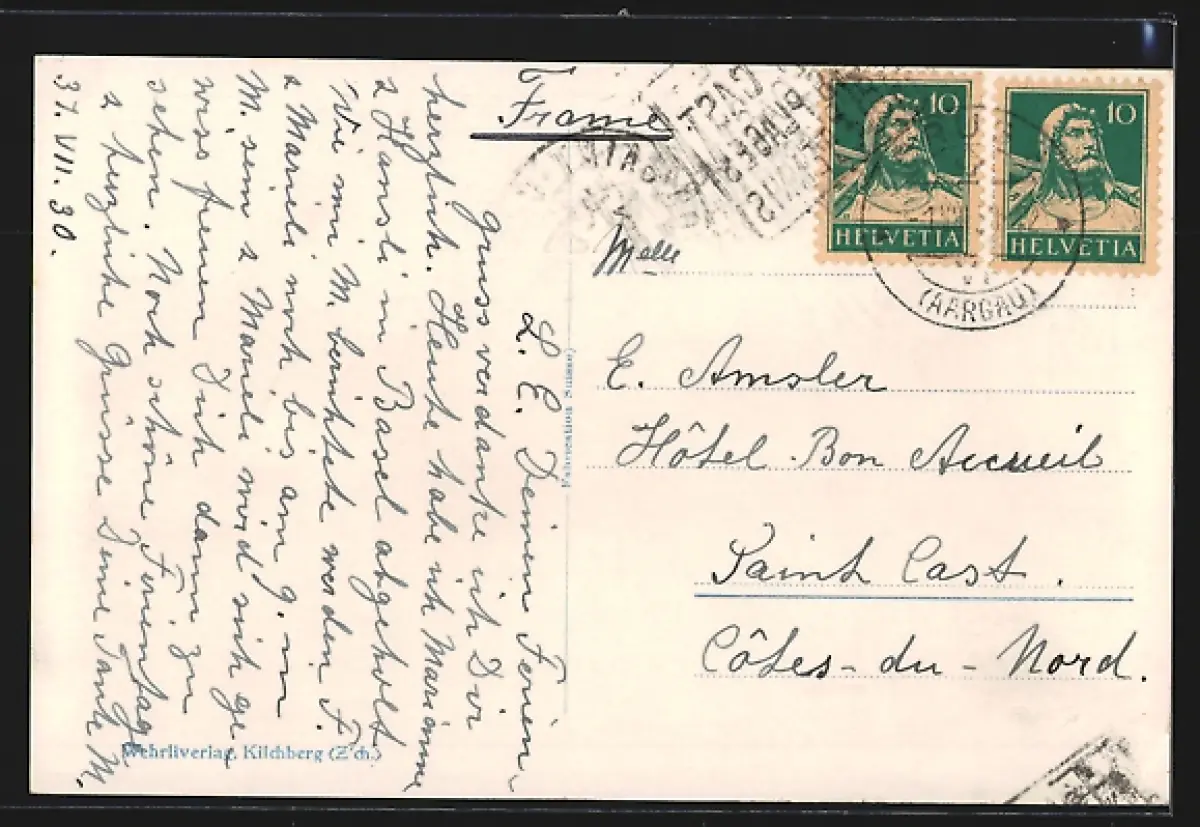 L. E. Deinen Ferien-
gruss verdanke ich Dir
herzlich. Heute habe ich Marianne
& Hansli in Basel abgeholt
Wie mir M. berichtete werden F.
& Marieli noch bis am 9. in
M. sein & Marieli wird sich ge
wiss freuen Dich dann zu
sehen. Noch schöne Ferientage
& herzliche Grüsse Deine Tante M.
31. VII. 30.
Wehrliverlag, Kilchberg (Z'ch.)
France
HELVETIA 10
HELVETIA 10
(AARGAU)
Melle
E. Amsler
Hôtel Bon Accueil
Saint Cast.
Côtes-du-Nord.